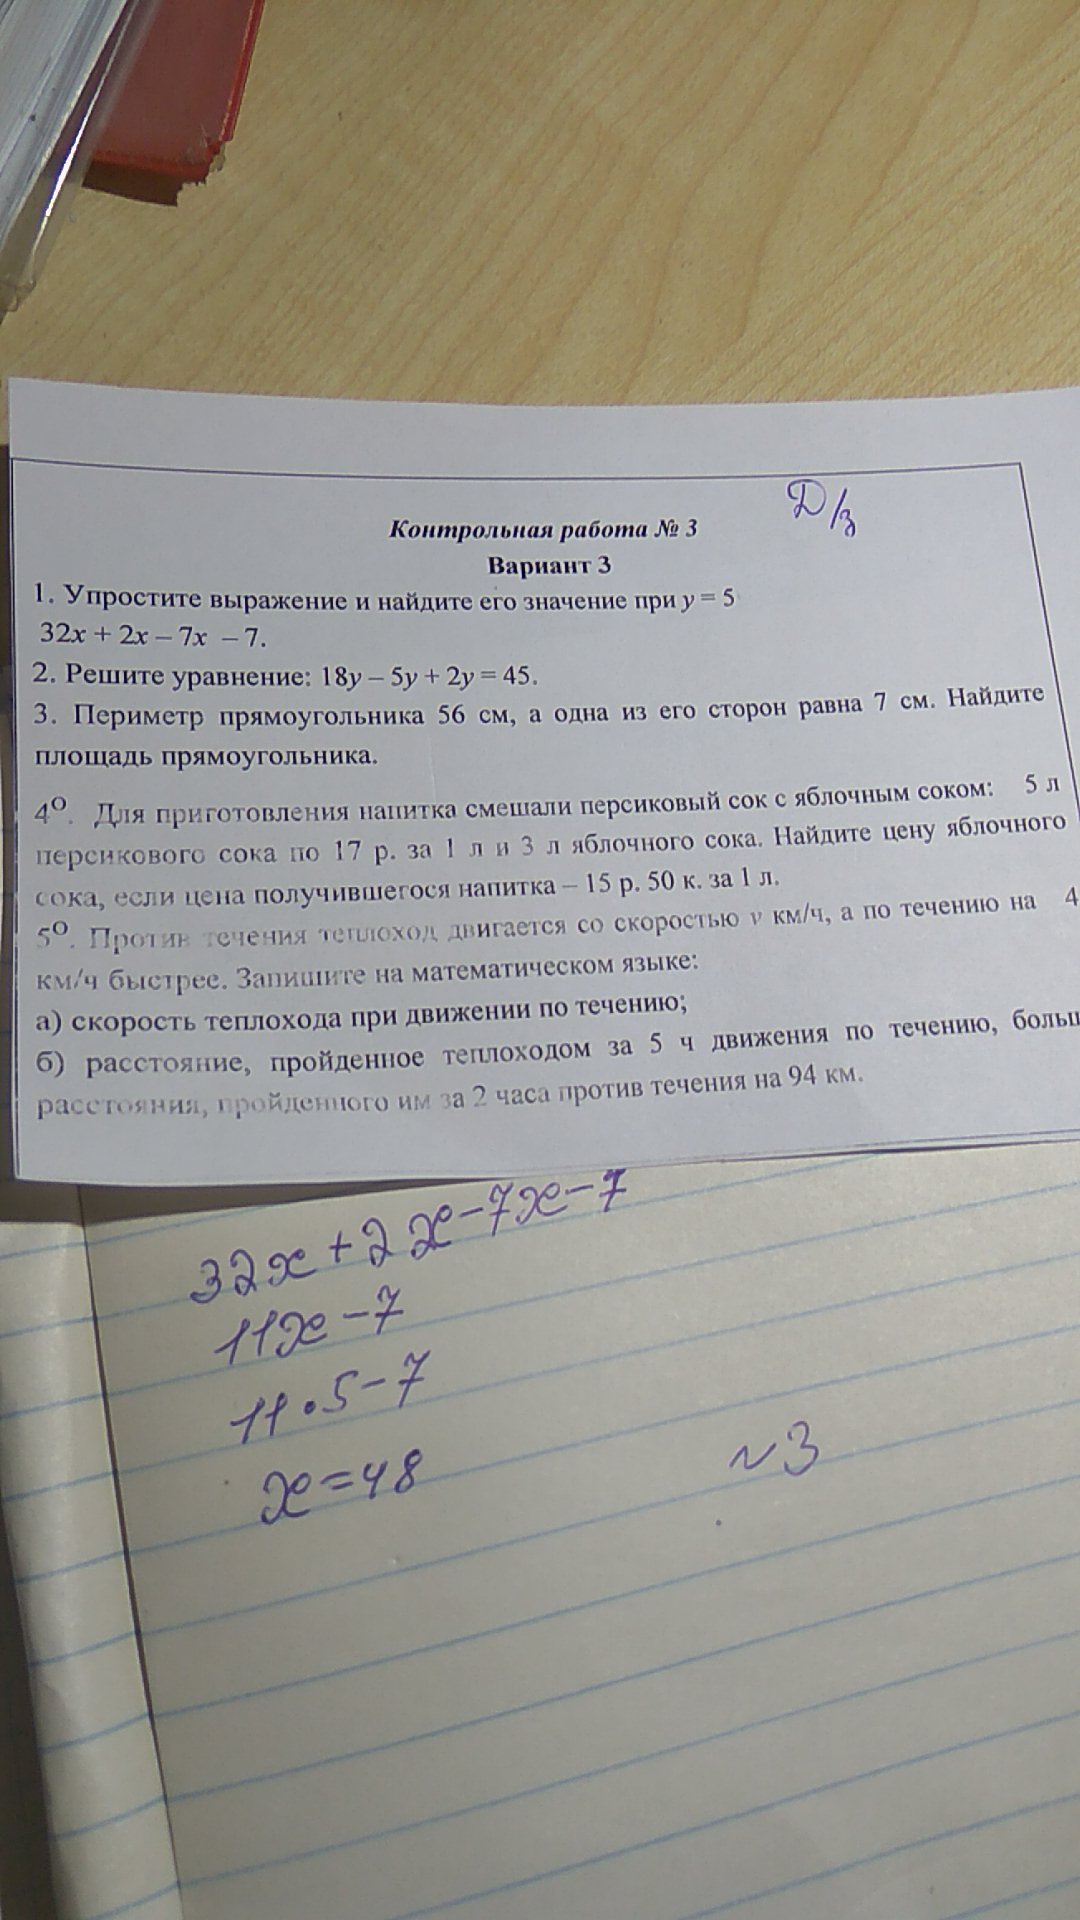 Д/з
Контрольная работа № 3
Вариант 3
1. Упростите выражение и найдите его значение при y = 5
32x + 2x – 7x – 7.
2. Решите уравнение: 18y – 5y + 2y = 45.
3. Периметр прямоугольника 56 см, а одна из его сторон равна 7 см. Найдите
площадь прямоугольника.
4О. Для приготовления напитка смешали персиковый сок с яблочным соком: 5 л
персикового сока по 17 р. за 1 л и 3 л яблочного сока. Найдите цену яблочного
сока, если цена получившегося напитка – 15 р. 50 к. за 1 л.
5О. Против течения теплоход двигается со скоростью v км/ч, а по течению на 4
км/ч быстрее. Запишите на математическом языке:
а) скорость теплохода при движении по течению;
б) расстояние, пройденное теплоходом за 5 ч движения по течению, больш
расстояния, пройденного им за 2 часа против течения на 94 км.
32x + 2x - 7x - 7
11x - 7
11 • 5 - 7
x = 48
~3